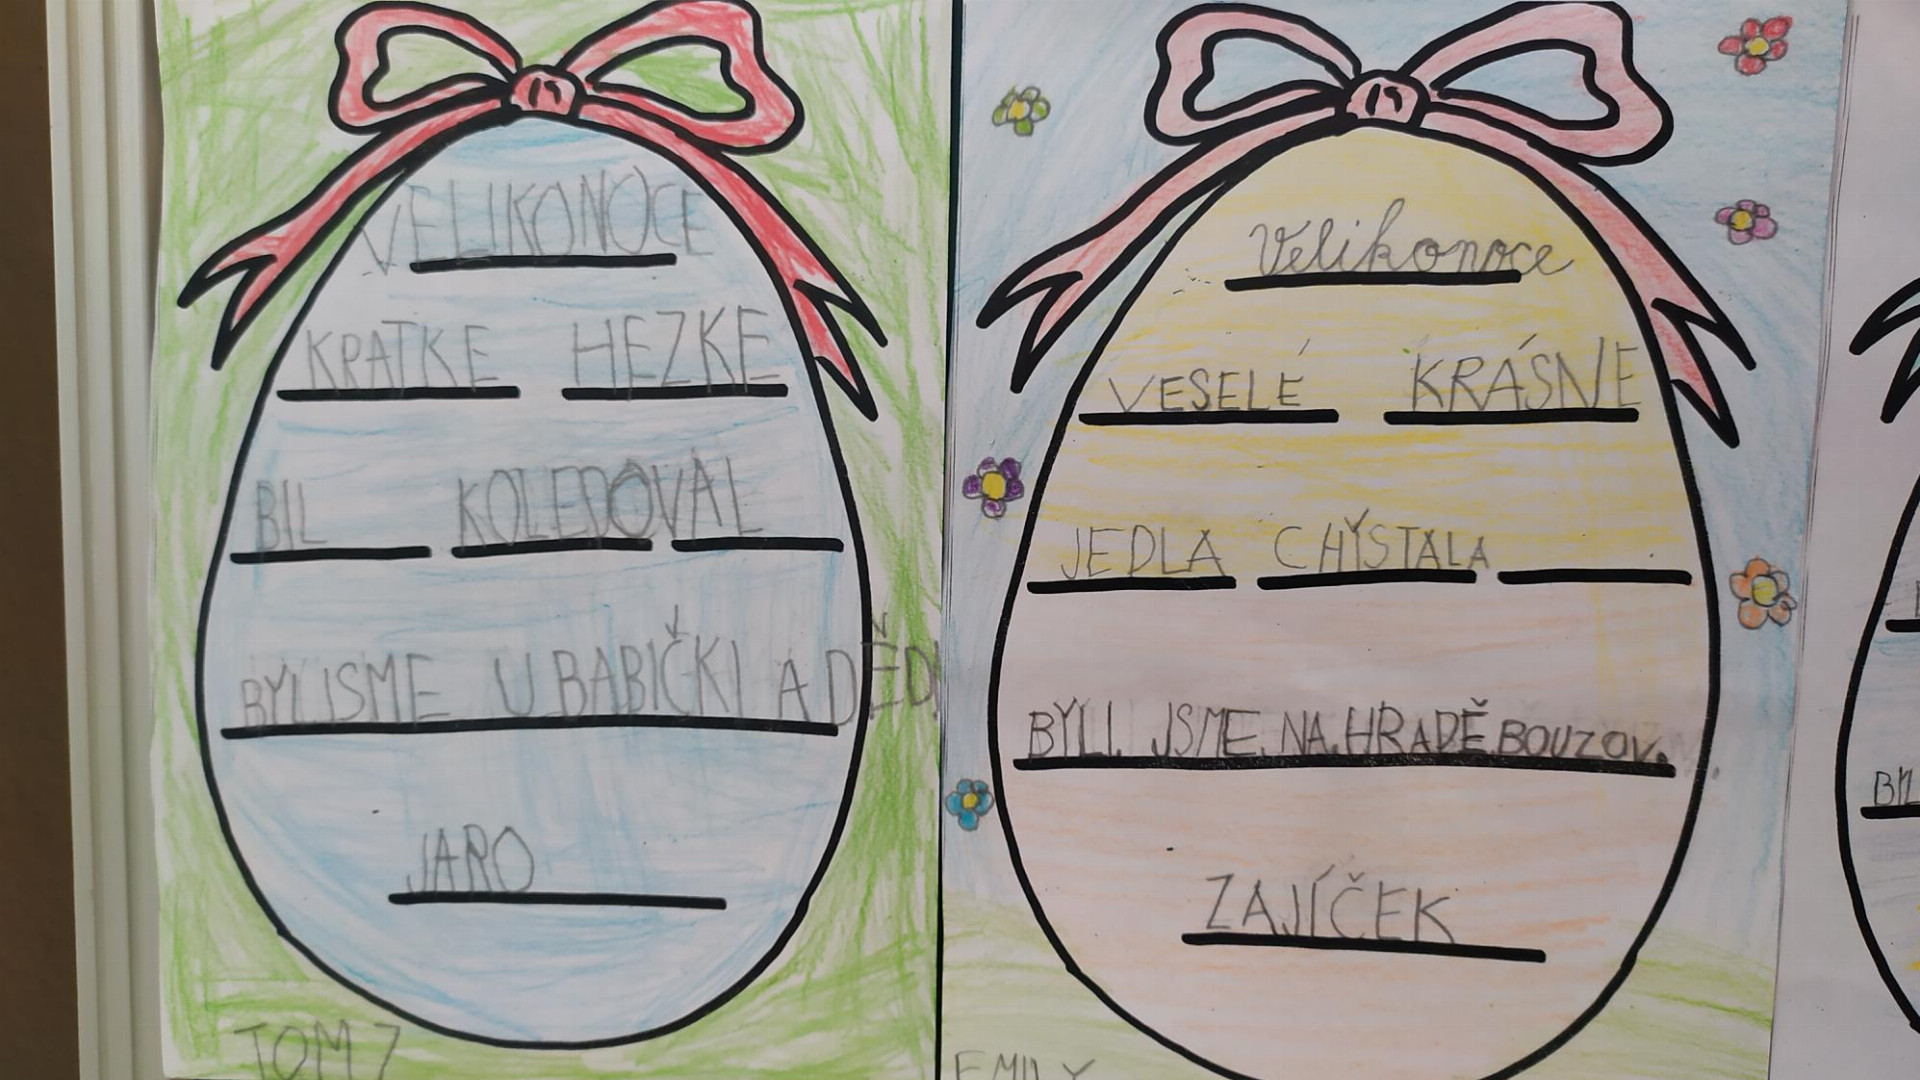 VELIKONOCE
KRATKE HEZKE
BIL KOLEDOVAL
BYLISME U BABIČKI A DĚD
JARO
TOM 7
Velikonoce
VESELÉ KRÁSNÉ
JEDLA CHYSTALA
BYLI JSME NA HRADĚ BOUZOV.
ZAJÍČEK
EMILY